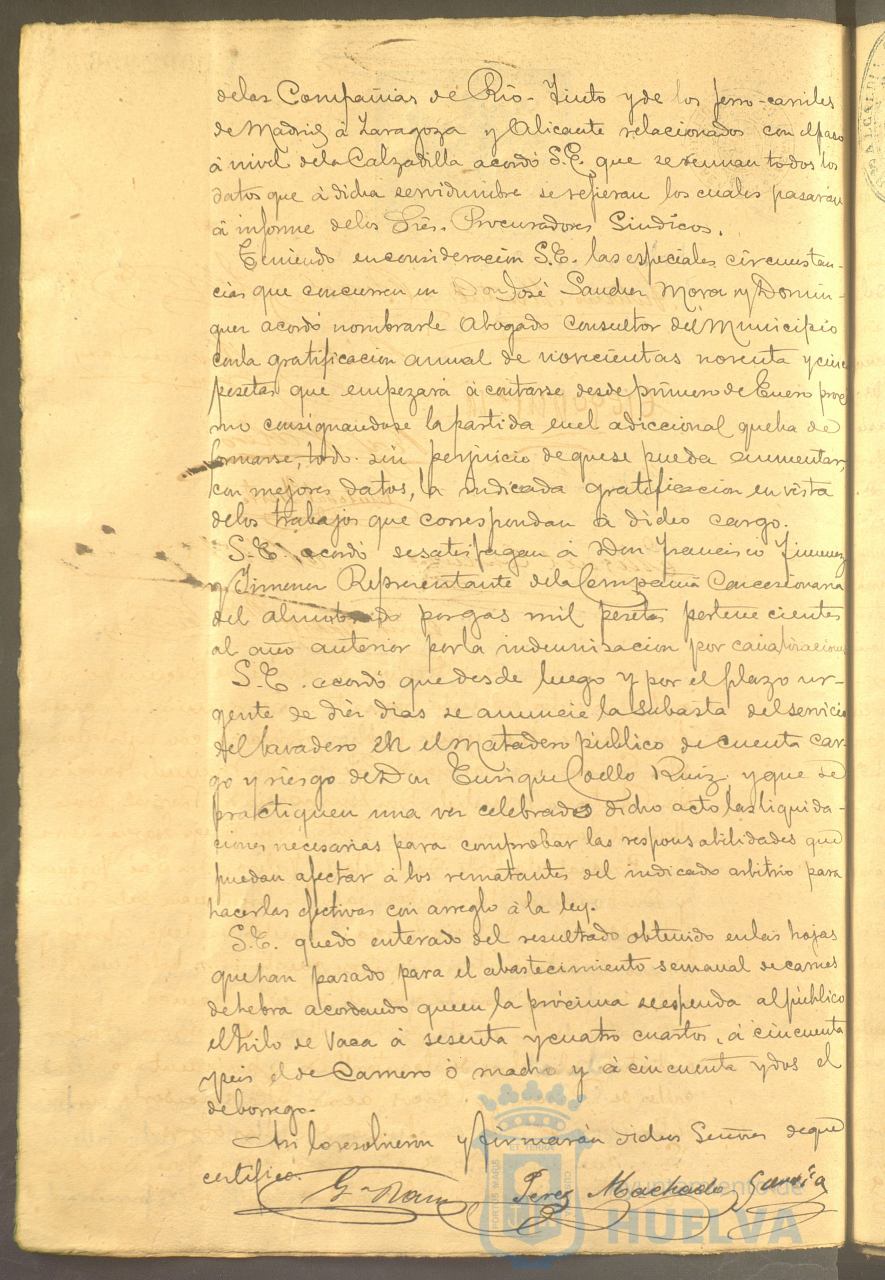 delas Compañias de Rio-Tinto y de los ferro-carriles
de Madrid á Zaragoza y Alicante relacionados con el paso
á nivel dela Calzadilla acordó S.E. que se reunan todos los
datos que á dicha servidumbre se refieran los cuales pasarán
á informe delos Sres. Procuradores Sindicos.
Teniendo en consideracion S.E. las especiales circunstan-
cias que concurren en Don José Sanchez Mora y Domin-
guez acordó nombrarle Abogado Consultor del Municipio
conla gratificacion anual de novecientas noventa y cinco
pesetas que empezará á contarse desde primero de Enero proxi
mo consignandose la partida enel adiccional que ha de
formarse, todo sin perjuicio de que se pueda aumentar,
con mejores datos, la indicada gratificacion en vista
delos trabajos que correspondan á dicho cargo.
S.E. acordó se satisfagan á Don Francisco Jimenez
y Jimenez Representante dela Compañia Concesionaria
del alumbrado por gas mil pesetas pertenecientes
al año anterior porla indemnisacion por canalizaciones
S.E. acordó que desde luego y por el plazo ur-
gente de diez dias se anuncie la subasta del servicio
del lavadero en el Matadero público de cuenta car-
go y riesgo de Don Enrique Coello Ruiz y que se
practiquen una vez celebrado dicho acto las liquida-
ciones necesarias para comprobar las responsabilidades que
puedan afectar á los rematantes del indicado arbitrio para
hacerlas efectivas con arreglo á la ley.
S.E. quedó enterado del resultado obtenido enlas hojas
que han pasado para el abastecimiento semanal de carnes
de hebra acordando que en la próxima se espenda al público
el kilo de Vaca á sesenta y cuatro cuartos, á cincuenta
y seis el de Carnero ó macho y á cincuenta y dos el
de borrego.
Asi lo resolvieron y firmarán dichos Señores de que
certifico.
Perez Machado Garcia
Ayuntamiento de
HUELVA